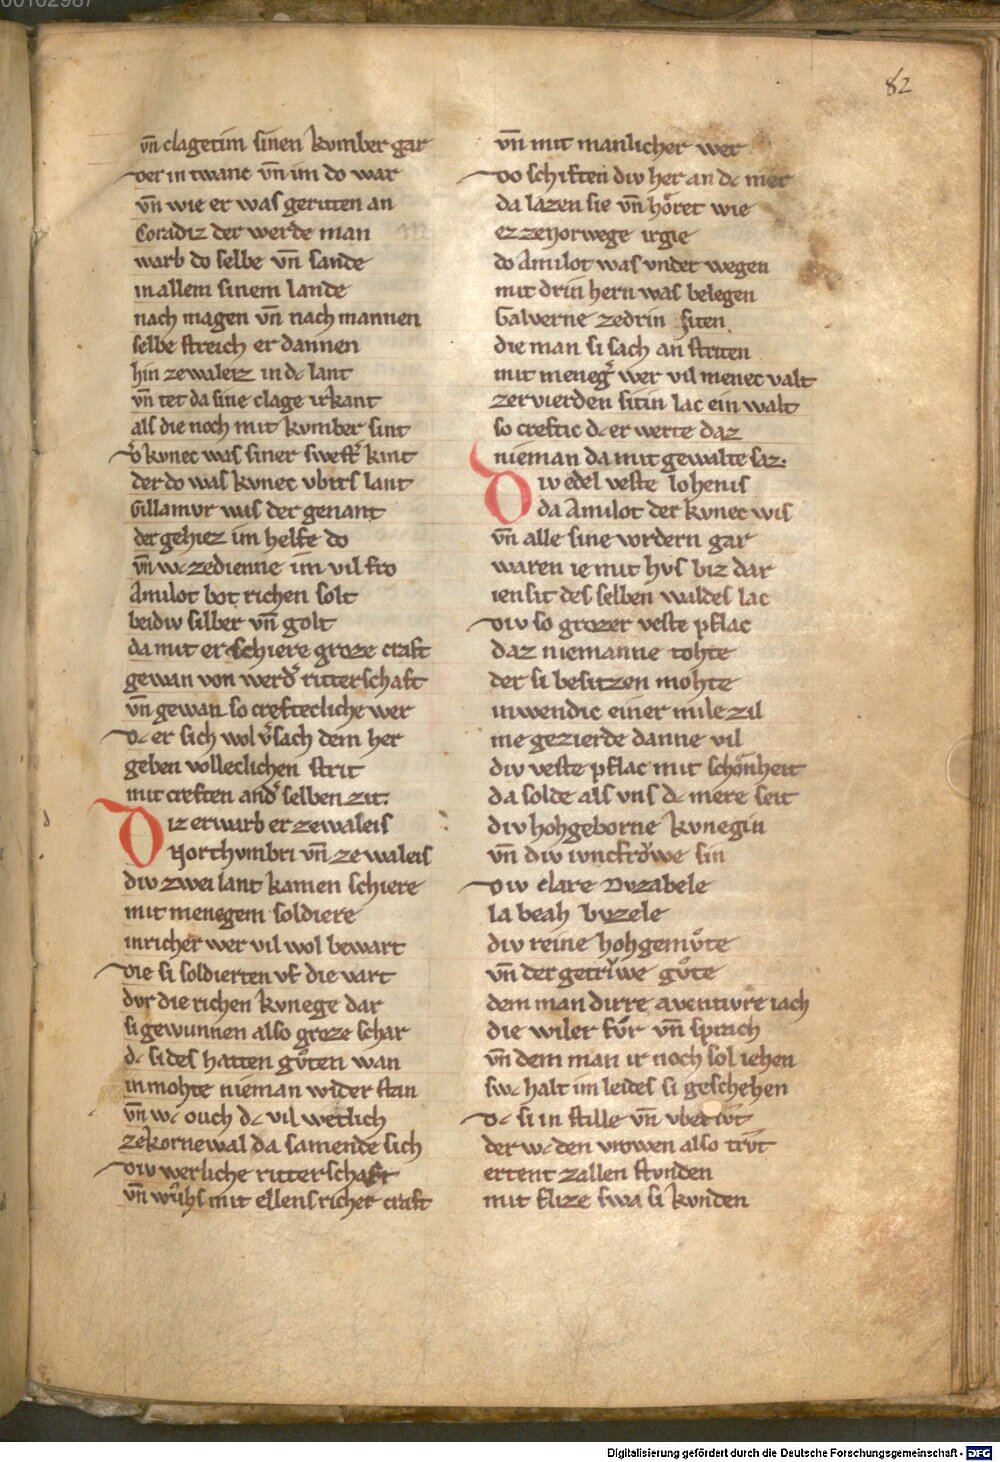 00102987
82
vn̄ clagetim sinen kvmber gar
der in twanc vn̄ im do war
vn̄ wie er was geritten an
Coradiz der werde man
warb do selbe vn̄ sande
in allem sinem lande
nach magen vn̄ nach mannen
selbe streich er dannen
hin ze waleiz in dc lant
vn̄ tet da sine clage irkant
als die noch mit kvmber sint
d͛ kvnec was siner swest͛ kint
der do was kvnec vbirs lant
Gillamvr was der genant
der gehiez im helfe do
vn̄ wc ze dienne im vil fro
Amilot bot richen solt
beidiv silber vn̄ golt
da mit er schiere groze craft
gewan von werd͛ ritterschaft
vn̄ gewan so creftecliche wer
dc er sich wol v͛sach dem her
geben volleclichen strit
mit creften and͛ selben zit.
Diz erwarb er ze waleis
Northvmbri vn̄ ze waleis
div zwei lant kamen schiere
mit menegem soldiere
in richer wer vil wol bewart
die si soldierten vf die vart
dvr die richen kvnege dar
si gewunnen also groze schar
dc si des hatten gv̊ten wan
in mohte nieman wider stan
vn̄ wc ouch dc vil wetlich
ze kornewal da samende sich
div werliche ritterschaft
vn̄ wv̊hs mit ellensricher craft
vn̄ mit manlicher wer
do schiften div her an dc mer
da lazen sie vn̄ hôret wie
ez ze norwege irgie
do Amilot was vnder wegen
mit drin hern was belegen
Galverne ze drin siten
die man si sach an striten
mit meneg͛ wer vil menec valt
ze vierden sitin lac ein walt
so creftic dc er werte daz
nieman da mit gewalte saz.
Div edel veste lohenis
da Amilot der kvnec wis
vn̄ alle sine vordern gar
waren ie mit hvs biz dar
iensit des selben waldes lac
div so grozer veste pflac
daz niemanne tohte
der si besitzen mohte
inwendic einer mile zil
me gezierde danne vil
div veste pflac mit schônheit
da solde als vns dc mere seit
div hohgeborne kvnegin
vn̄ div ivncfrôwe sin
div clare Dvzabele
la beah bvzele
div reine hohgemv̊te
vn̄ der getriwe gv̊te
dem man dirre aventivre iach
die wiler fv̊r vn̄ sprach
vn̄ dem man ir noch sol iehen
swc halt im leides si geschehen
dc si in stille vn̄ vberlv̊t
der wc den vrowen also trv̊t
er tent zallen stvnden
mit flize swa si kvnden
Digitalisierung gefördert durch die Deutsche Forschungsgemeinschaft - DFG